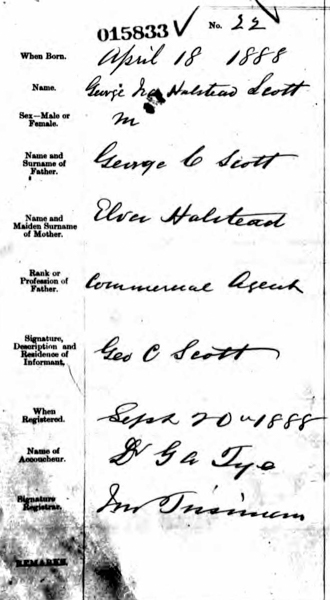 015833 No. 22
When Born. April 18 1888
Name. George Halstead Scott
Sex—Male or
Female. m
Name and
Surname of
Father. George C Scott
Name and
Maiden Surname
of Mother. Halstead
Rank or
Profession of
Father. Commercial Agent
Signature,
Description and
Residence of
Informant. Geo C Scott
When
Registered. Sept 20 1888
Name of
Accoucheur. Dr G A Tye
Signature
Registrar.
REMARKS.